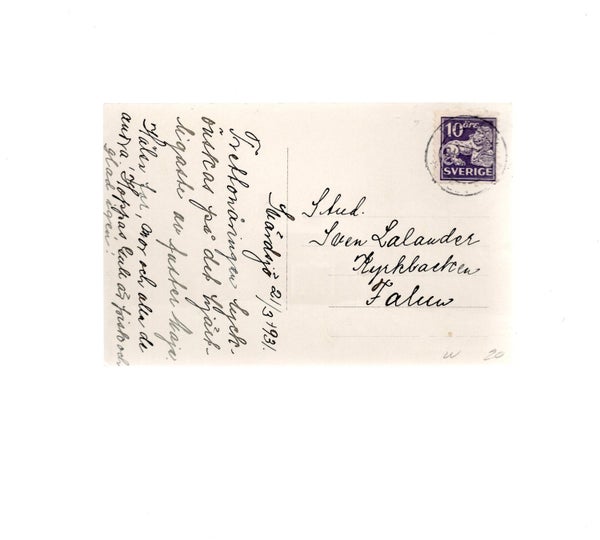 Svärdsjö 21/3 1931.
Trettonåringen lyck-
önskas på det hjärt-
ligaste av faster Maja.
Hälsa far, mor och alla de
andra, Hoppas Gulli är frisk och
glad igen!
10 ÖRE
SVERIGE
Stud.
Sven Lalander
Kyrkbacken
Falun
W 20